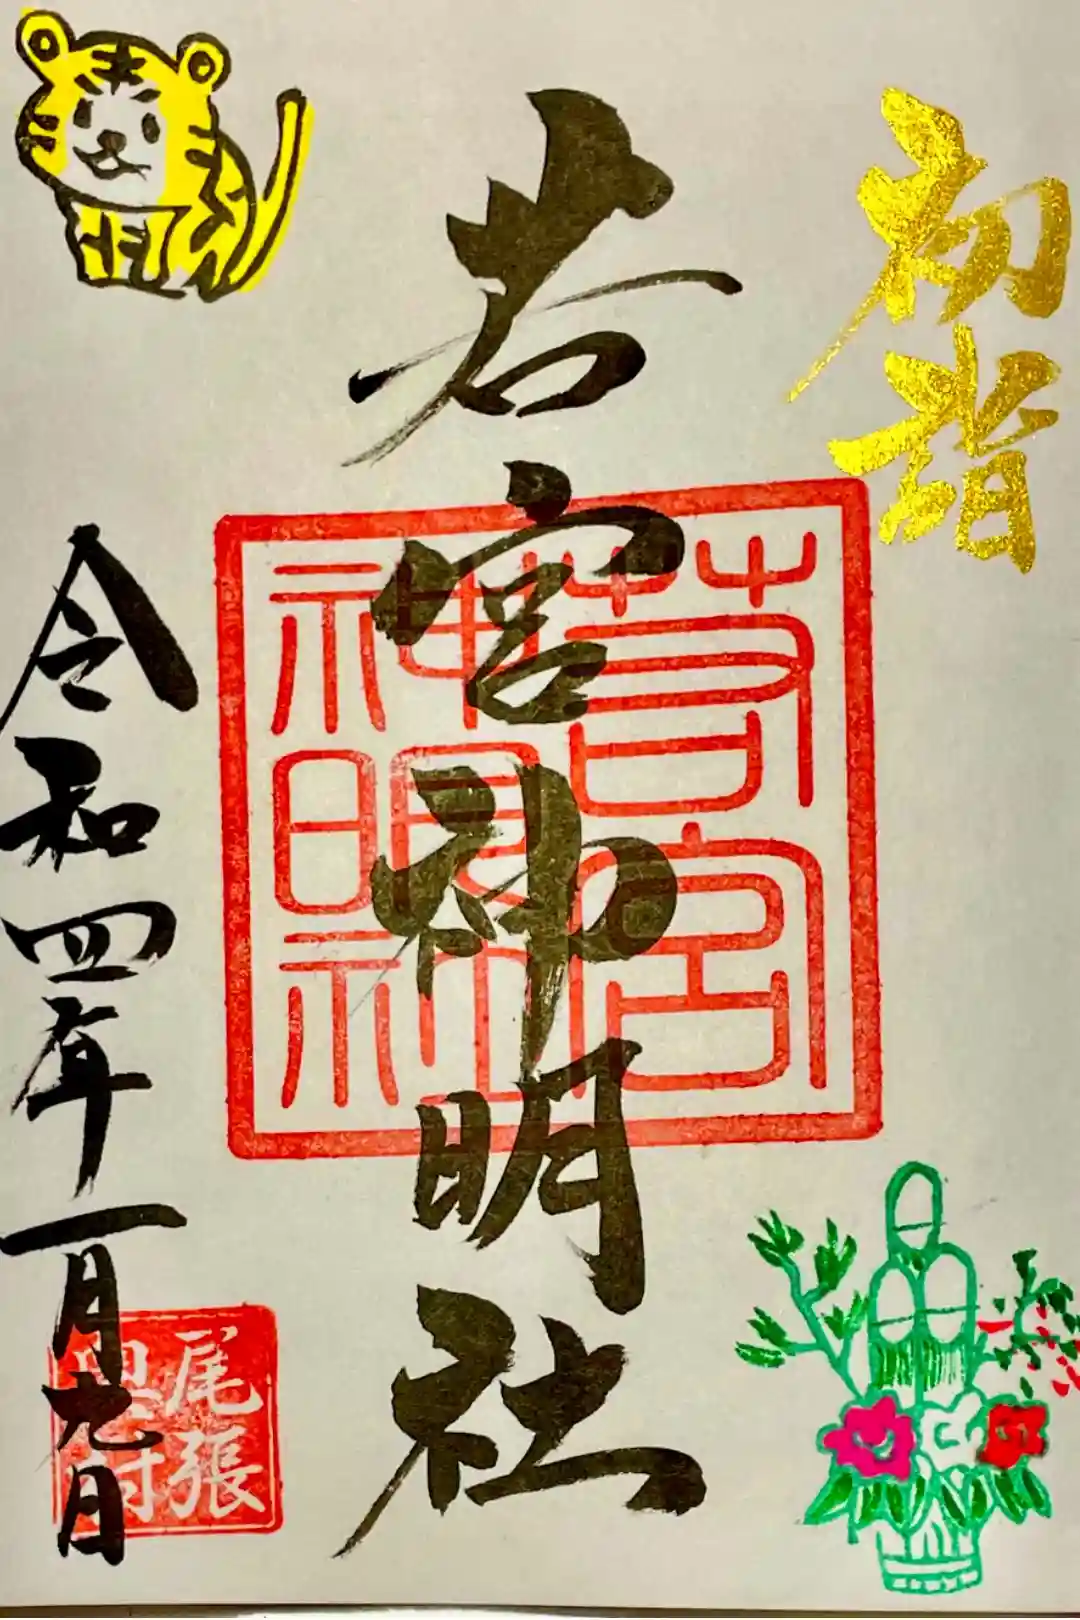 初詣
若宮神明社
若宮
神明社
令和四年一月九日
尾張